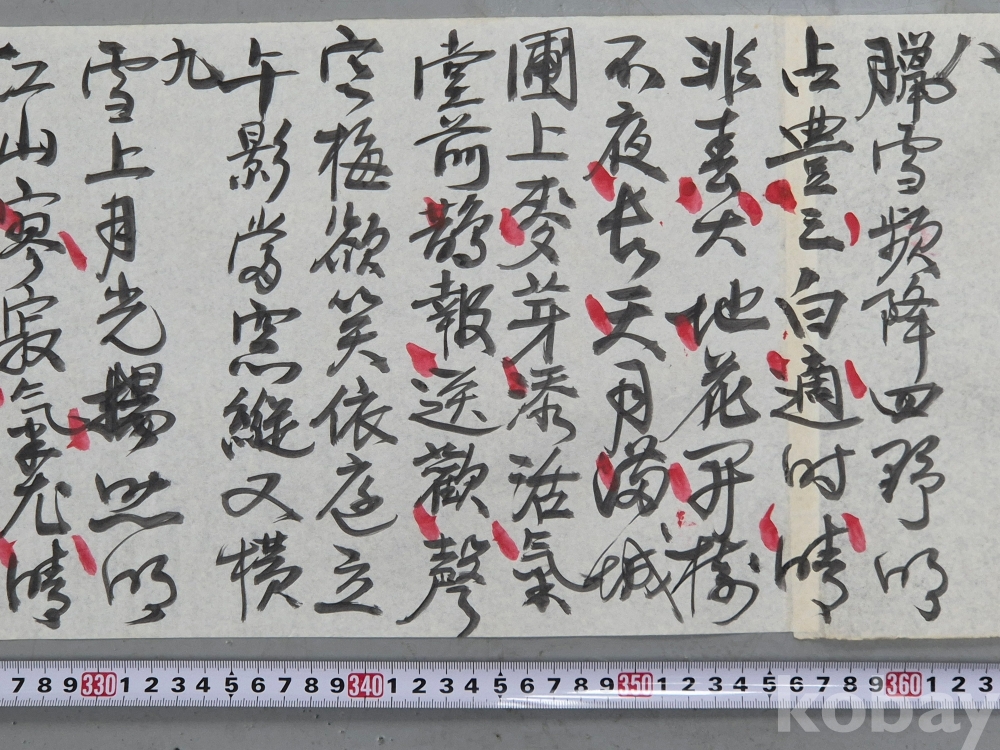 八
臘雪頻降四野明
占豊三白適时晴
非春大地花開樹
不夜長天月滿城
圃上麥芽添活氣
堂前鵲報送歡聲
窓梅欲笑依庭立
午影當窓縱又橫
九
雪上月光揚照明
江山寥寂氣尤晴
7 8 9 330 1 2 3 4 5 6 7 8 9 340 1 2 3 4 5 6 7 8 9 350 1 2 3 4 5 6 7 8 9 360 1 2 3
kobay